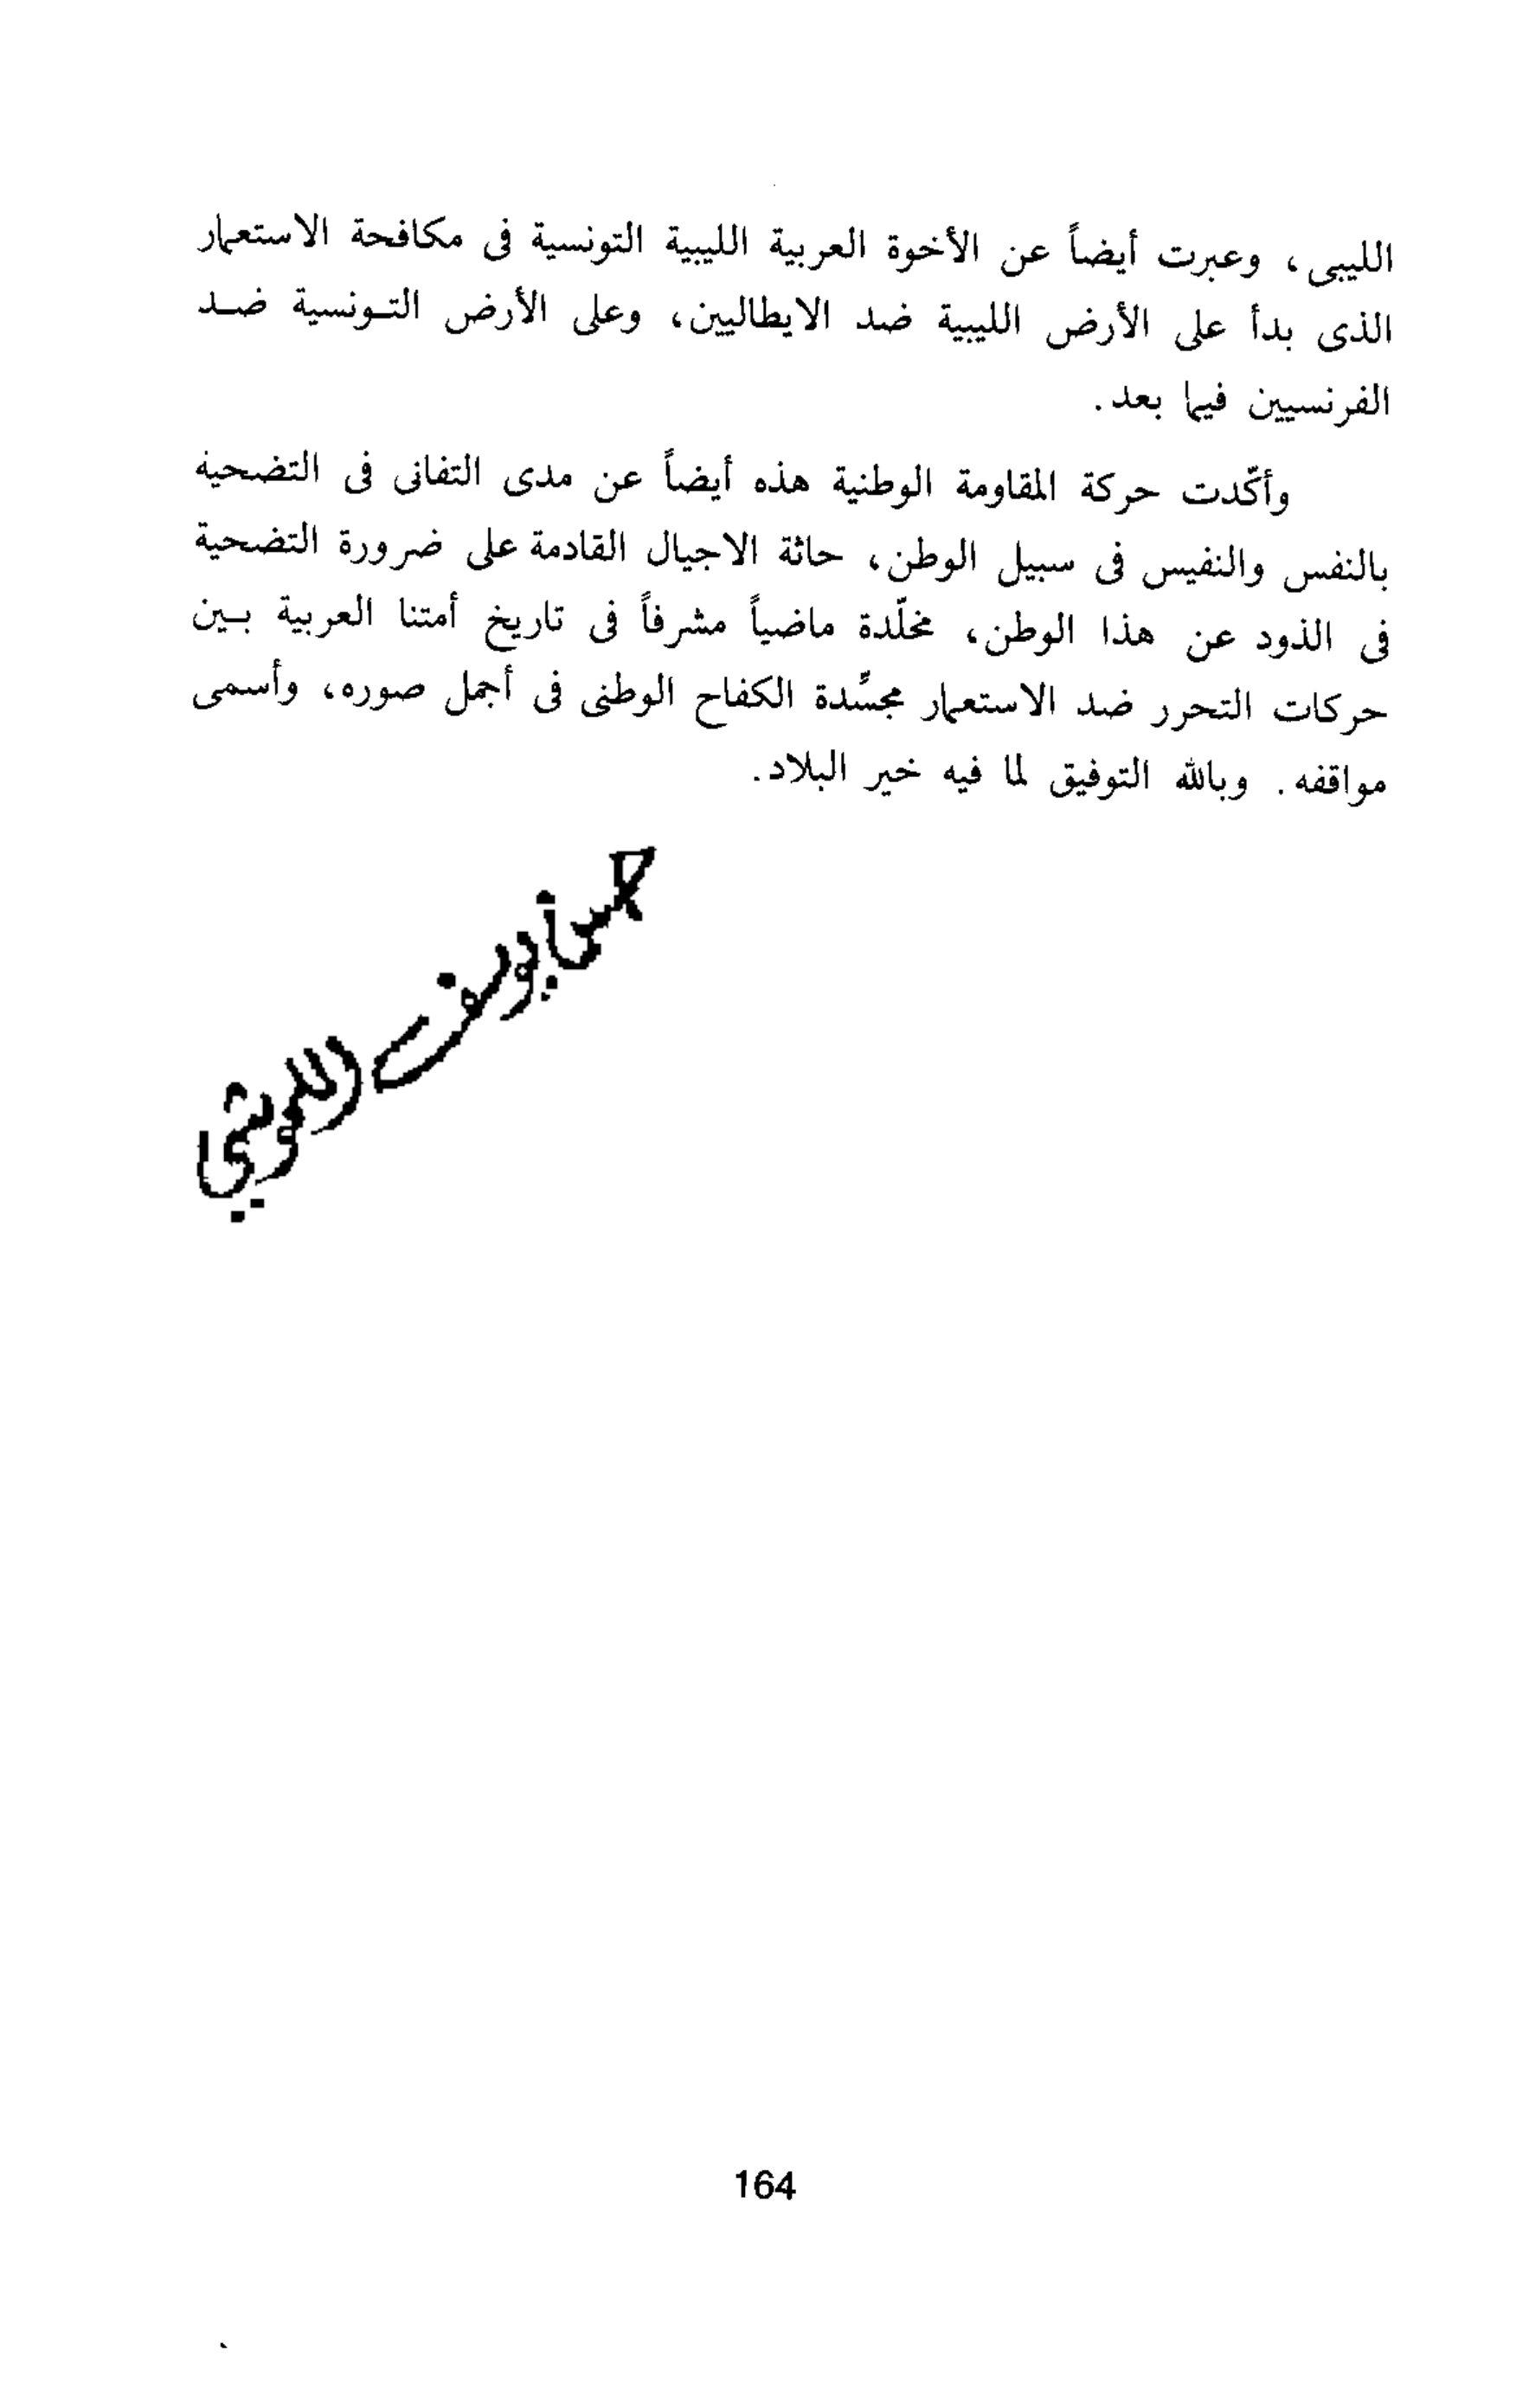 الليبى، وعبرت أيضاً عن الأخوة العربية الليبية التونسية فى مكافحة الاستعمار
الذى بدأ على الأرض الليبية ضد الايطاليين، وعلى الأرض التـونسية ضـد
الفرنسيين فيما بعد.
وأكّدت حركة المقاومة الوطنية هذه أيضاً عن مدى التفانى فى التضحية
بالنفس والنفيس فى سبيل الوطن، حاثة الاجيال القادمة على ضرورة التضحية
فى الذود عن هذا الوطن، مخلّدة ماضياً مشرفاً فى تاريخ أمتنا العربية بـين
حركات التحرر ضد الاستعمار مجسِّدة الكفاح الوطنى فى أجمل صوره، وأسمى
مواقفه. وبالله التوفيق لما فيه خير البلاد.
164